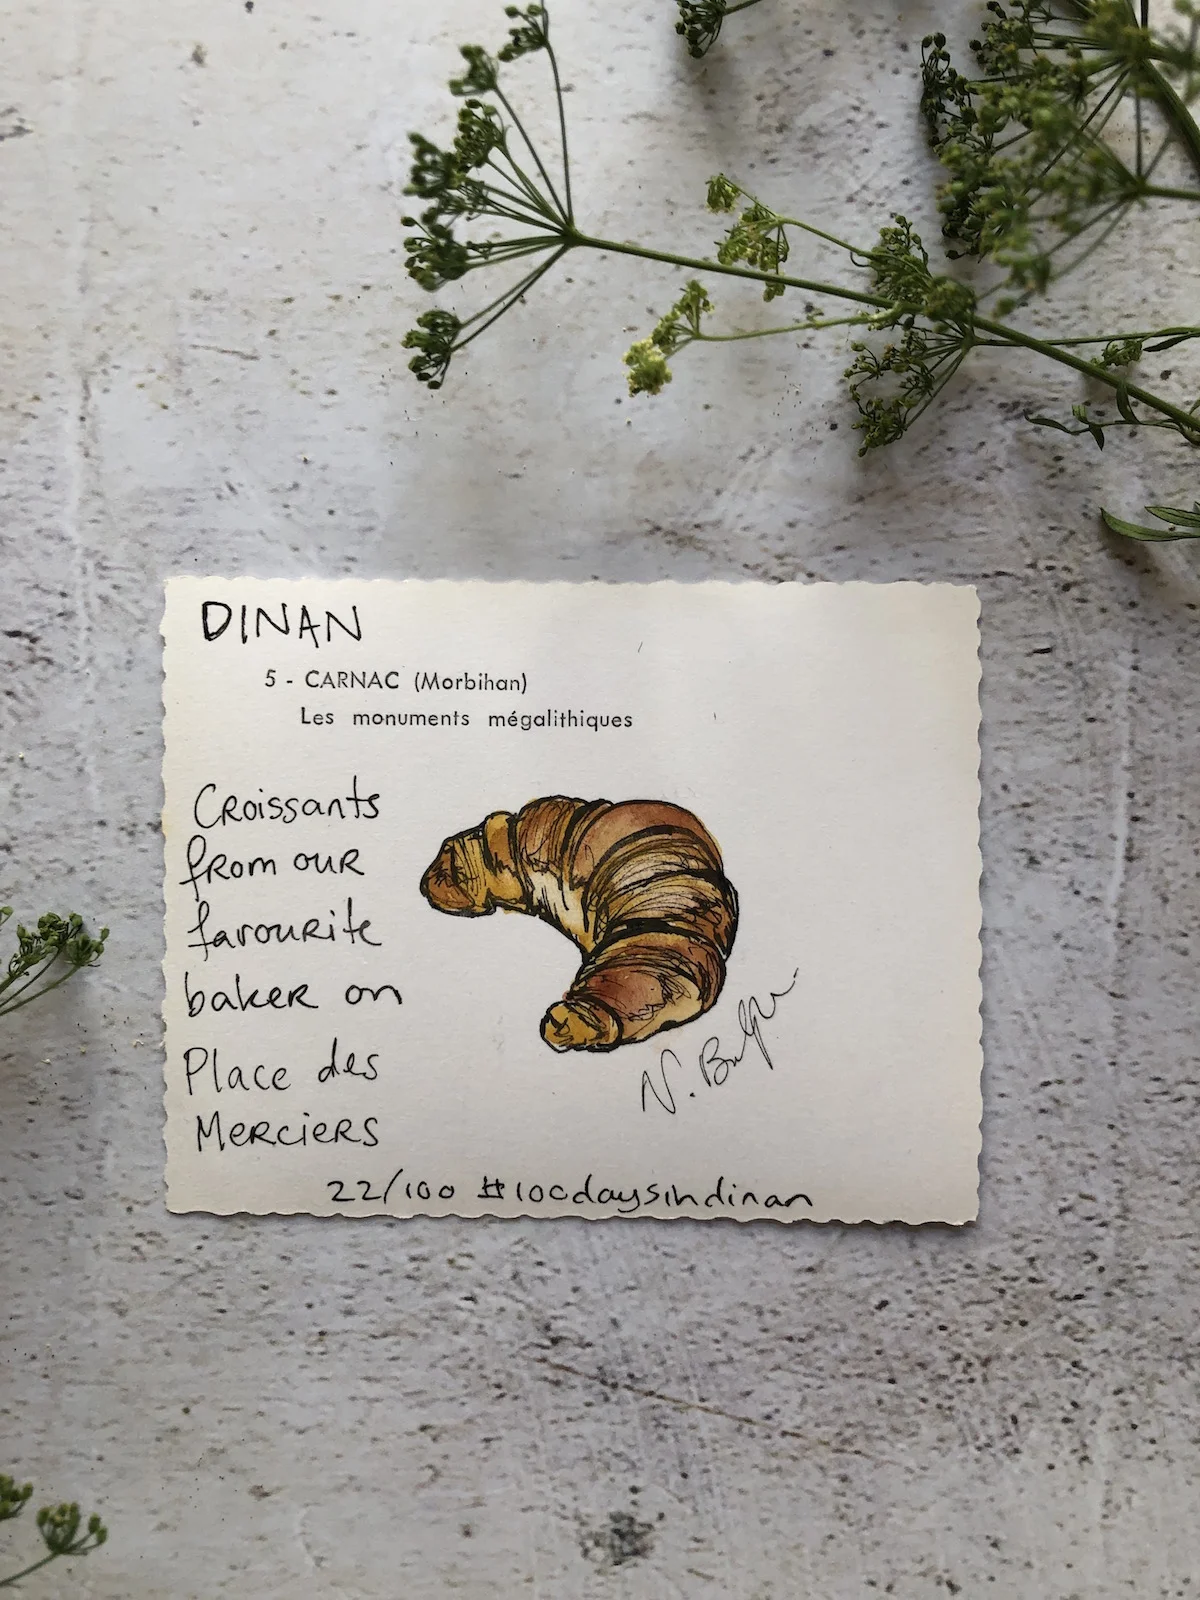 DINAN
5 - CARNAC (Morbihan)
Les monuments mégalithiques
Croissants
from our
favourite
baker on
Place des
Merciers
N.
22/100 #100daysindinan